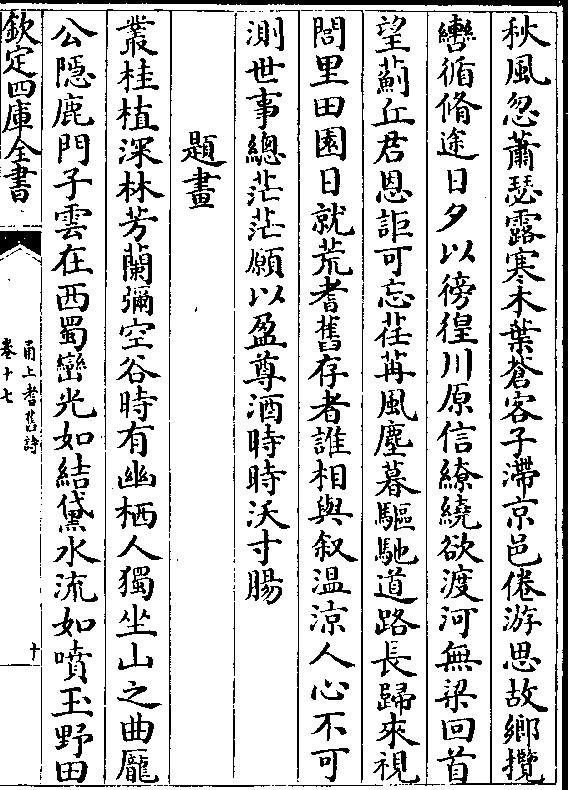 秋風忽蕭瑟露寒木葉蒼客子滯京邑倦游思故鄉攬
轡循脩途日夕以徬徨川原信繚繞欲渡河無梁回首
望薊丘君恩詎可忘荏苒風塵暮驅馳道路長歸來視
閭里田園日就荒耆舊存者誰相與叙温凉人心不可
測世事總茫茫願以盈尊酒時時沃寸腸
題畫
叢桂植深林芳蘭彌空谷時有幽栖人獨坐山之曲龎
公隠鹿門子雲在西蜀巒光如結黛水流如噴玉野田
欽定四庫全書
甬上耆舊詩
卷十七
十